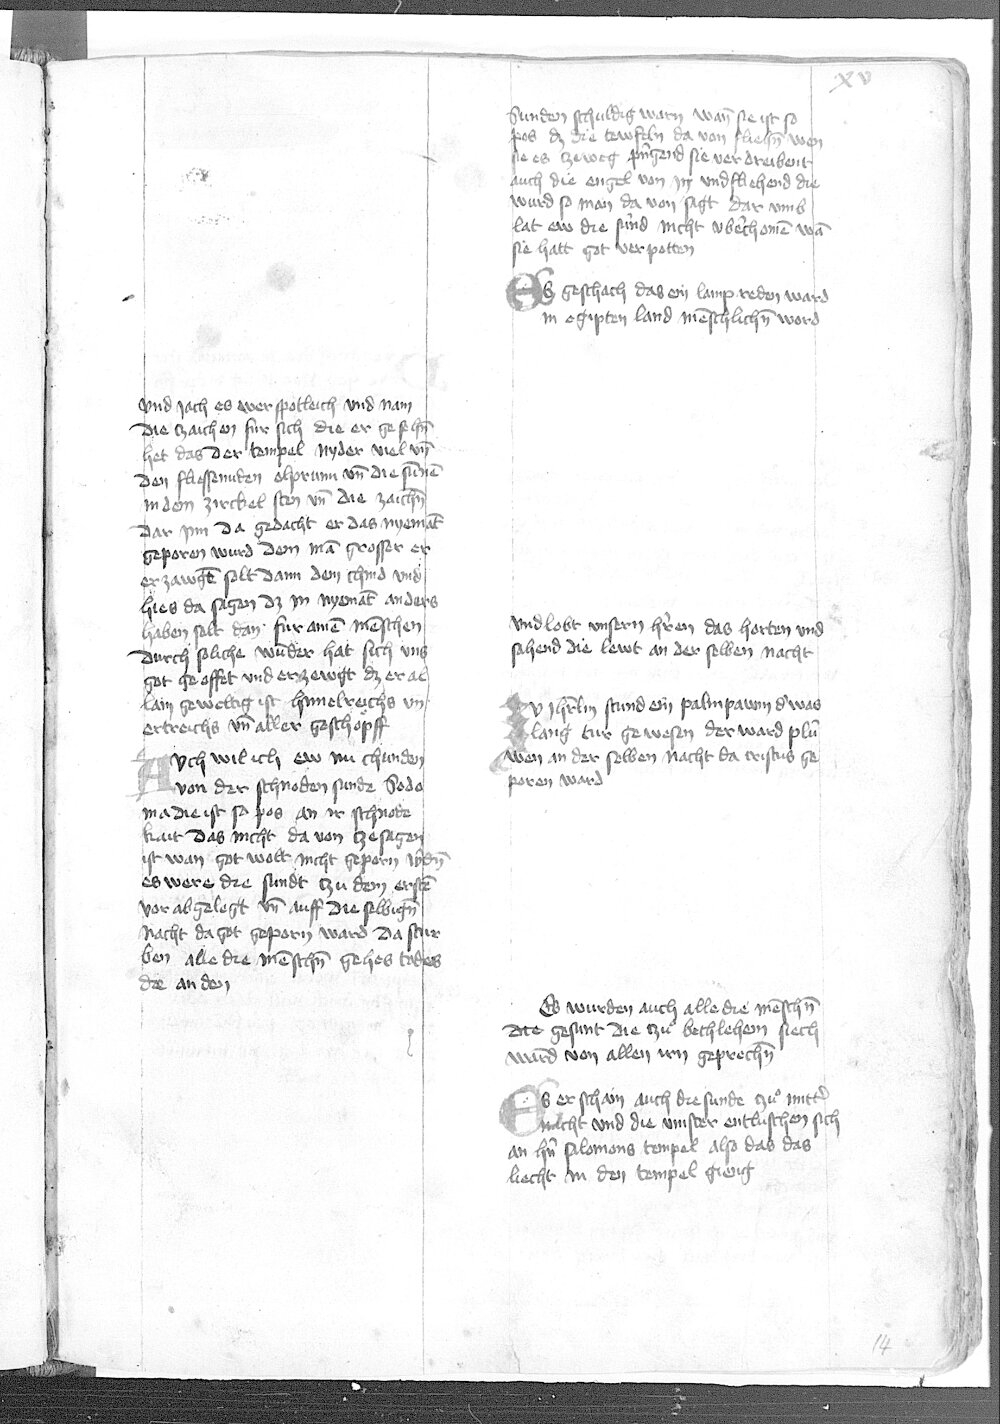 xv
vnd jach es wer spotleich vnd nam
die tzaichen fur sich die er gesehn̄
het das der tempel nyder viel vn̄
den fliessenden olprunn vn̄ die sūnē
in dem zirckel sten vn̄ die zaichn̄
dar jnn da gedacht er das nyemāt
geporen wurd dem mā grosser er
erzawgt̄ solt dann dem chind vnd
hies da sagen dz jn nyemāt anders
haben solt dan fur ainē mēschen
durch soliche wūder hat sich vns
got geoffet vnd erzewgt dz er al
lain geweltig ist himelreichs vn̄
ertreichs vn̄ aller geschopff
Auch wil ich ew nu chunden
von der schnoden sunde Sodo
ma die ist so pos an ir schnode
kait das nicht da von tzesagen
ist wan got wolt nicht geporn w̄dn̄
es were die sundt tzu dem erstē
vor abgelegt vn̄ auff die selbign̄
nacht da got geporn ward da stur
ben alle die mēschn̄ gehes todes
die an den
sunden schuldig warn wan̄ sie ist so
pos dz die tewfeln da von fliehn̄ wen
sie es tzeweg pringend sie ver dreibent
auch die engel von jn vnd fliehend die
wurd so man da von sagt dar vmb
lat ew die sund nicht vberchomē wā
sie hatt got verpotten
Es geschach das ein lamp reden ward
in egipten land mēschlichn̄ word
vnd lobt vnsern hr̄en das horten vnd
sahend die lewt an der selben nacht
Zu jhrl̄m stund ein palmpawm d' was
lang dur gewesen der ward plu
wen an der selben nacht da cristus ge
poren ward
Es wurden auch alle die mēschn̄
die gesunt die tzu bethlehem siech
warn̄ von allen irn geprechn̄
Es erschain auch die sunde tzu mitt'
nacht vnd die vinster entluschen sich
an hn̄ salomons tempel also das das
liecht in den tempel gieng
14